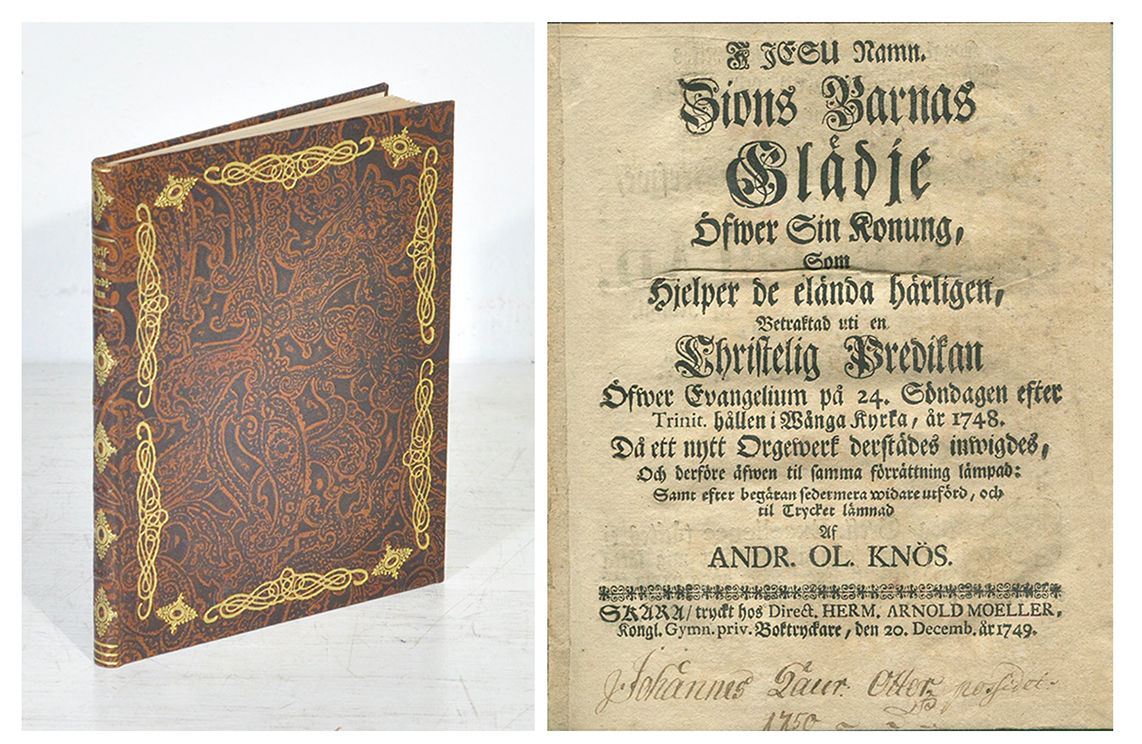 I JESU Namn.
Zions Barnas
Glädje
Öfwer Sin Konung,
Som
Hjelper de elända härligen,
Betraktad uti en
Christelig Predikan
Öfwer Evangelium på 24. Söndagen efter
Trinit. hållen i Wånga Kyrka, år 1748.
Då ett nytt Orgewerk derstådes inwigdes,
Och derföre äfwen til samma förrättning lämpad:
Samt efter begäran sedermera widare utförd, och
til Trycket lämnad
Af
ANDR. OL. KNÖS.
SKARA/ tryckt hos Direct. HERM. ARNOLD MOELLER,
Kongl. Gymn. priv. Boktryckare, den 20. Decemb. år 1749.
Johannes Laur. Otter possidet.
1750